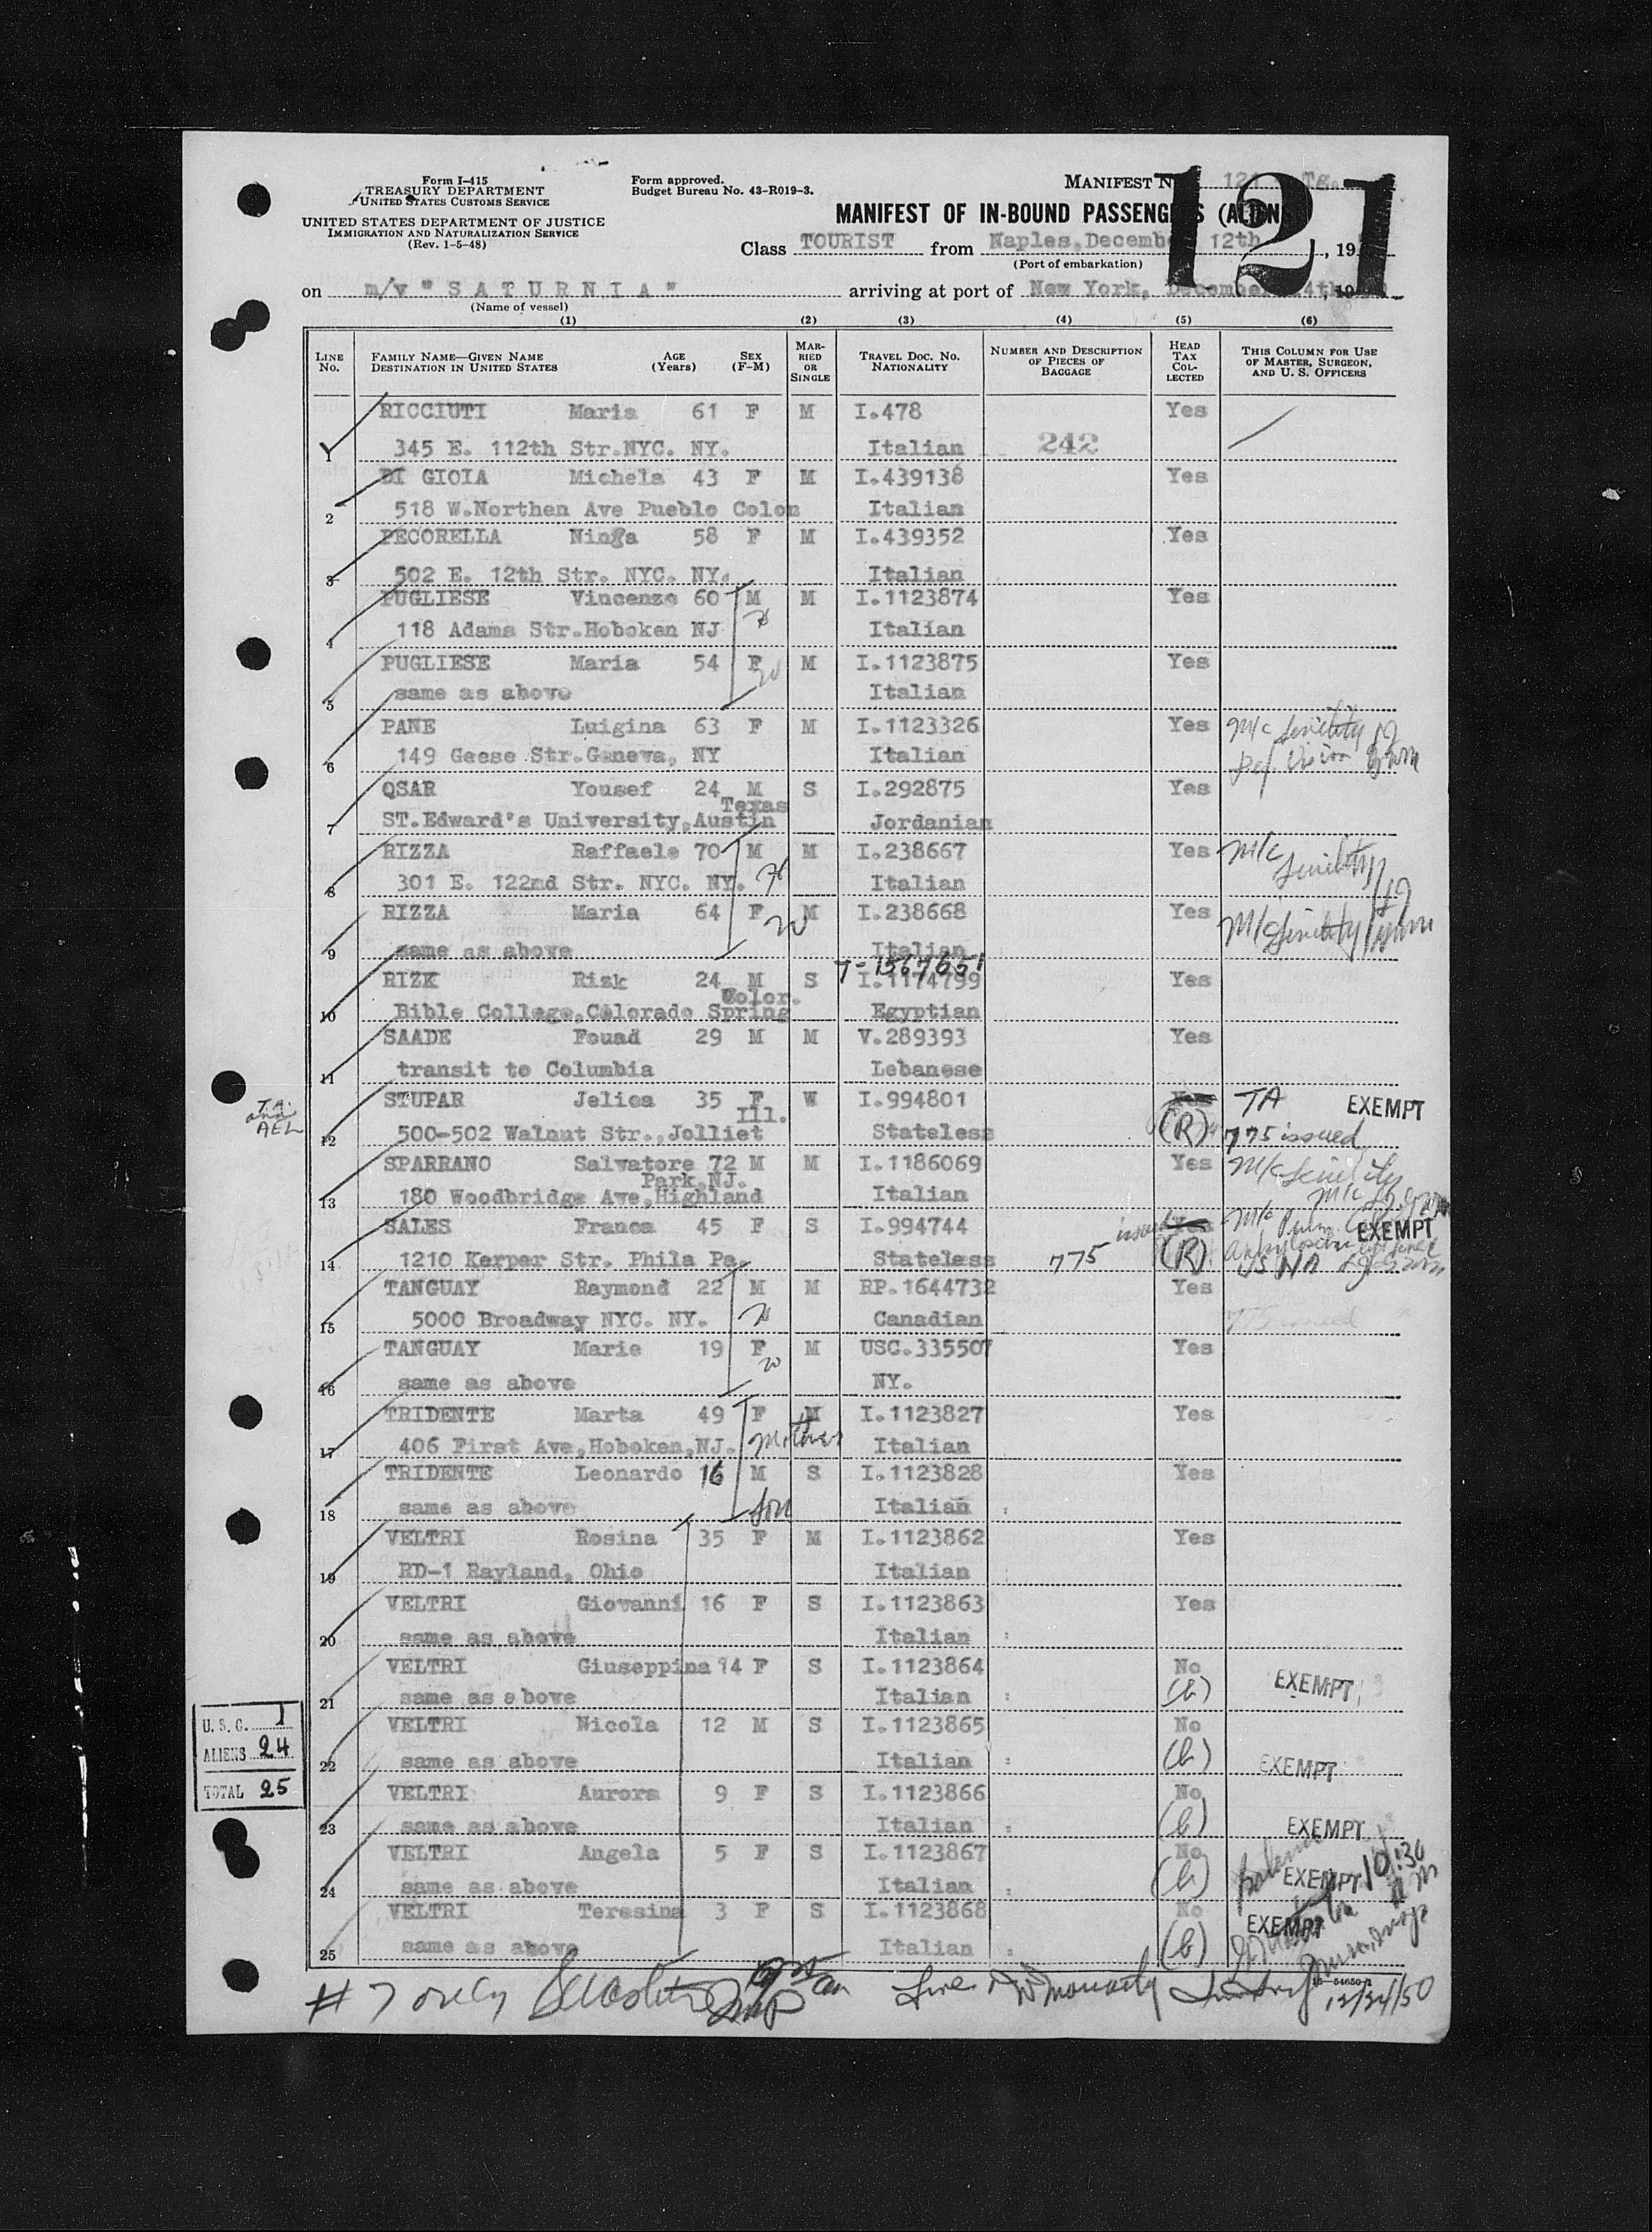 Form I-415
TREASURY DEPARTMENT
UNITED STATES CUSTOMS SERVICE
UNITED STATES DEPARTMENT OF JUSTICE
IMMIGRATION AND NATURALIZATION SERVICE
(Rev. 1-5-48)
Form approved.
Budget Bureau No. 43-R019-3.
MANIFEST
121
MANIFEST OF IN-BOUND PASSENGERS (ALIENS)
Class TOURIST from Naples, December 12th, 19
(Port of embarkation)
on m/v "SATURNIA" arriving at port of New York, December 24th, 19
(Name of vessel)
(1) (2) (3) (4) (5) (6)
LINE NO. FAMILY NAME—GIVEN NAME DESTINATION IN UNITED STATES AGE (Years) SEX (F-M) MARRIED OR SINGLE TRAVEL DOC. NO. NATIONALITY NUMBER AND DESCRIPTION OF PIECES OF BAGGAGE HEAD TAX COLLECTED THIS COLUMN FOR USE OF MASTER, SURGEON, AND U. S. OFFICERS
RICCIUTI Maria 61 F M I.478 Yes
1 345 E. 112th Str.NYC. NY. Italian 242
DI GIOIA Michela 43 F M I.439138 Yes
2 518 W.Northen Ave Pueblo Colom Italian
PECORELLA Ninga 58 F M I.439352 Yes
3 502 E. 12th Str. NYC. NY. Italian
PUGLIESE Vincenzo 60 M M I.1123874 Yes
4 118 Adams Str.Hoboken NJ Italian
PUGLIESE Maria 54 F M I.1123875 Yes
5 same as above Italian
PANE Luigina 63 F M I.1123326 Yes M/c Senility
6 149 Geese Str.Geneva, NY Italian Def. Vision
QSAR Yousef 24 M S I.292875 Yes
Texas
7 ST.Edward's University,Austin Jordanian
RIZZA Raffaele 70 M M I.238667 Yes M/c Senility
8 301 E. 122nd Str. NYC. NY. Italian
RIZZA Maria 64 F M I.238668 Yes M/c Senility
9 same as above Italian
T-1567651
RIZK Rizk 24 M S I.1174799 Yes
Color.
10 Bible College,Colorado Spring Egyptian
SAADE Fouad 29 M M V.289393 Yes
11 transit to Columbia Lebanese
T.A. and AEL
STUPAR Jelica 35 F W I.994801 Yes TA EXEMPT
Ill.
12 500-502 Walnut Str., Jolliet Stateless (R) 775 issued
SPARRANO Salvatore 72 M M I.1186069 Yes M/c Senility
Park,NJ.
13 180 Woodbridge Ave,Highland Italian
SALES Franca 45 F S I.994744 issued Yes M/c EXEMPT
14 1210 Kerper Str. Phila Pa. Stateless 775 (R)
TANGUAY Raymond 22 M M RP.1644732 Yes
15 5000 Broadway NYC. NY. Canadian 775 issued
TANGUAY Marie 19 F M USC.335507 Yes
16 same as above NY.
TRIDENTE Marta 49 F M I.1123827 Yes
17 406 First Ave,Hoboken,NJ. Mother Italian
TRIDENTE Leonardo 16 M S I.1123828 Yes
18 same as above son Italian
VELTRI Rosina 35 F M I.1123862 Yes
19 RD-1 Rayland, Ohio Italian
VELTRI Giovanni 16 F S I.1123863 Yes
20 same as above Italian
VELTRI Giuseppina 14 F S I.1123864 No
21 same as above Italian (b) EXEMPT
VELTRI Nicola 12 M S I.1123865 No
22 same as above Italian (b) EXEMPT
VELTRI Aurora 9 F S I.1123866 No
23 same as above Italian (b) EXEMPT
VELTRI Angela 5 F S I.1123867 No
24 same as above Italian (b) EXEMPT 10:30 AM
VELTRI Teresina 3 F S I.1123868 No EXEMPT
25 same as above Italian (b)
U. S. C. 1
ALIENS 24
TOTAL 25
16—54650-1
# 7 only
12/24/50